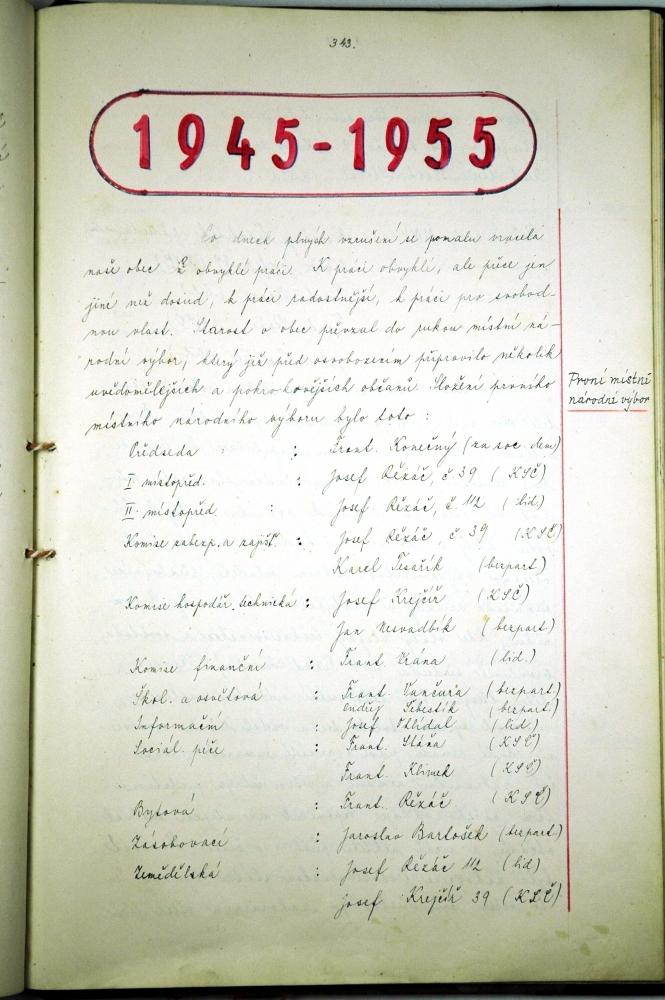 343.
1945-1955
Po dnech plných vzrušení se pomalu vracela
naše obec k obvyklé práci. K práci obvyklé, ale přece jen
jiné než dosud, k práci radostnější, k práci pro svobod-
nou vlast. Starost o obec převzal do rukou místní ná-
rodní výbor, který již před osvobozením připravilo několik
uvědomělejších a pokrokovějších občanů. Složení prvního
místního národního výboru bylo toto :
První místní
národní výbor
Předseda : Frant. Konečný (za soc. dem)
I. místopřed. : Josef Řezáč, č. 39 (KSČ)
II. místopřed. : Josef Řezáč, č. 112 (lid.)
Komise zabezp. a zajišť. : Josef Řezáč, č. 39 (KSČ)
Karel Tesařík (bezpart)
Komise hospodář. technická : Josef Krejčíř (KSČ)
Jan Nesvadbík (bezpart.)
Komise finanční : Frant. Vrána (lid.)
Škol. a osvětová : Frant. Vančura (bezpart.)
Šebestík (bezpart.)
Informační : Josef Ohlídal (lid)
Sociál. péče : Frant. Stáňa (KSČ)
Frant. Klimek (KSČ)
Bytová : Frant. Řezáč (KSČ)
Zásobovací : Jaroslav Bartošek (bezpart.)
Zemědělská : Josef Řezáč 112 (lid)
Josef Krejčíř 39 (KSČ)